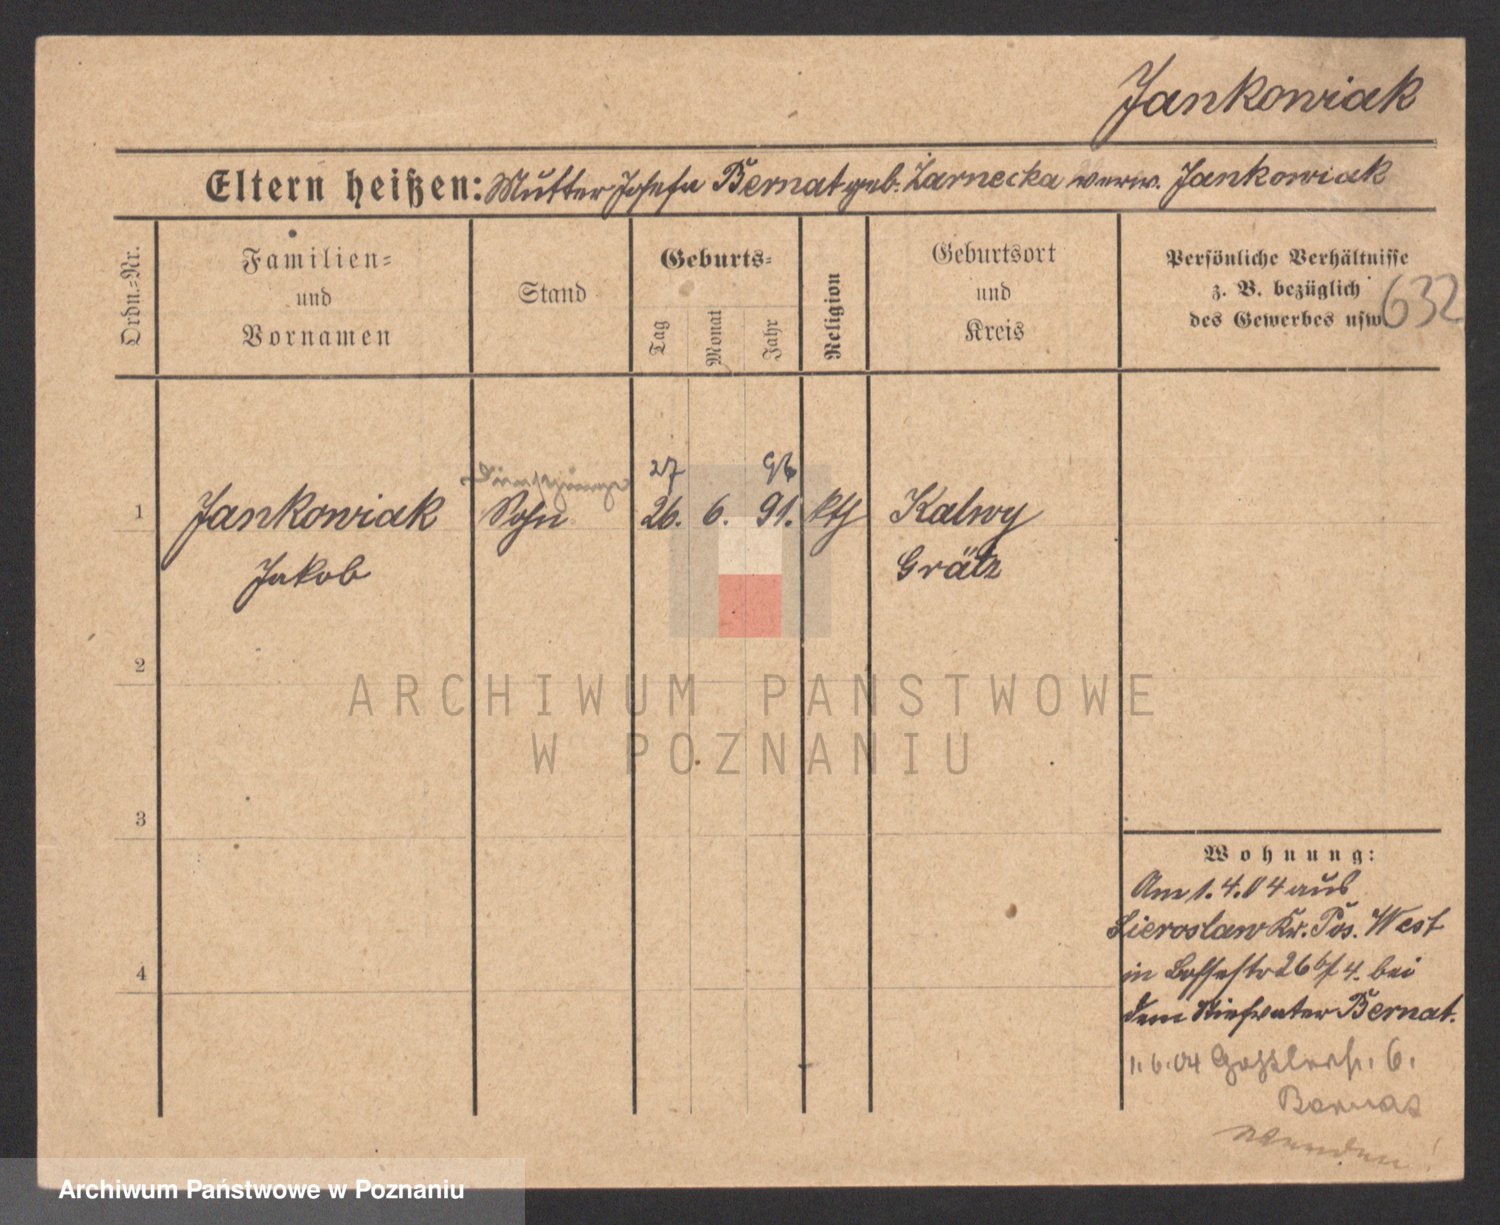 Jankowiak
Eltern heißen: Mutter Josefa Bernat geb. Zarnecka verw. Jankowiak
Ordn.-Nr.
Familien- und Vornamen
Stand
Geburts-
Tag
Monat
Jahr
Religion
Geburtsort und Kreis
Persönliche Verhältnisse
z. B. bezüglich
des Gewerbes usw.
632
27
1 Jankowiak Sohn 26. 6. 91. kth Kalwy
Jakob Grätz
2
3
4
ARCHIWUM PAŃSTWOWE
W POZNANIU
Wohnung:
Am 1.4.04 aus
Sieroslaw Kr. Pos. West
in 26 b/ 4. bei
dem Stiefvater Bernat.
1.6.04 Gosslerstr. 6.
Bernat
wenden!
Archiwum Państwowe w Poznaniu